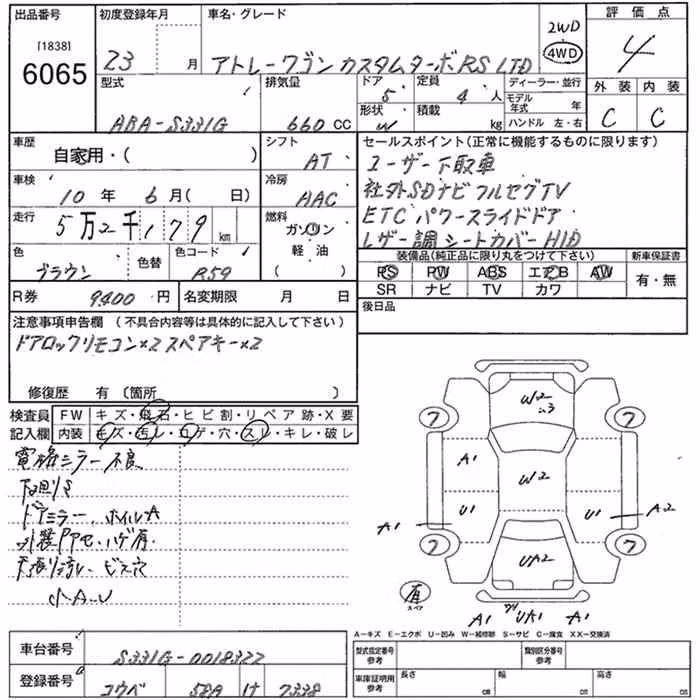 出品番号
[1838]
6065
初度登録年月
23 月
車名・グレード
アトレーワゴン カスタムターボRS LTD
2WD
4WD
評価点
4
外装 内装
C C
型式
ABA-S331G
排気量
660 CC
ドア
5
定員
4 人
形状
W
積載
kg
ディーラー・並行
モデル年式 年
ハンドル 左・右
車歴
自家用・( )
シフト
AT
車検
10年 6月( 日)
冷房
AAC
走行
5万2千179 km
燃料
ガソリン
軽油
( )
色
ブラウン
色替
色コード
R59
R券 9400 円
名変期限 月 日
セールスポイント(正常に機能するものに限ります)
ユーザー下取車
社外SDナビフルセグTV
ETC パワースライドドア
レザー調シートカバーHID
装備品(純正品に限り丸をつけて下さい)
PS PW ABS エアB AW
SR ナビ TV カワ
新車保証書
有・無
後日品
注意事項申告欄 (不具合内容等は具体的に記入して下さい)
ドアロックリモコン×2 スペアキー×2
修復歴 有 〔箇所 〕
検査員
記入欄
FW キズ・飛石・ヒビ割・リペア跡・X要
内装 キズ・汚レ・コゲ・穴・スレ・キレ・破レ
電格ミラー不良
下廻りS
ドアミラー、ホイルA
外装PPセ、ハゲ有
天張り汚レ ビス穴
小A.U
W2
A1
W2
U1
U1
A1
A2
UA2
ワ
ワ
ワ
ワ
有
スペア
A1
UA1
A1
A-キズ E-エクボ U-凹み W-補修跡 S-サビ C-腐食 XX-交換済
車台番号
S331G-0018322
登録番号
コウベ 582 け 7338
型式指定番号
参考
類別区分番号
参考
車庫証明用
参考
長さ cm
幅 cm
高さ cm